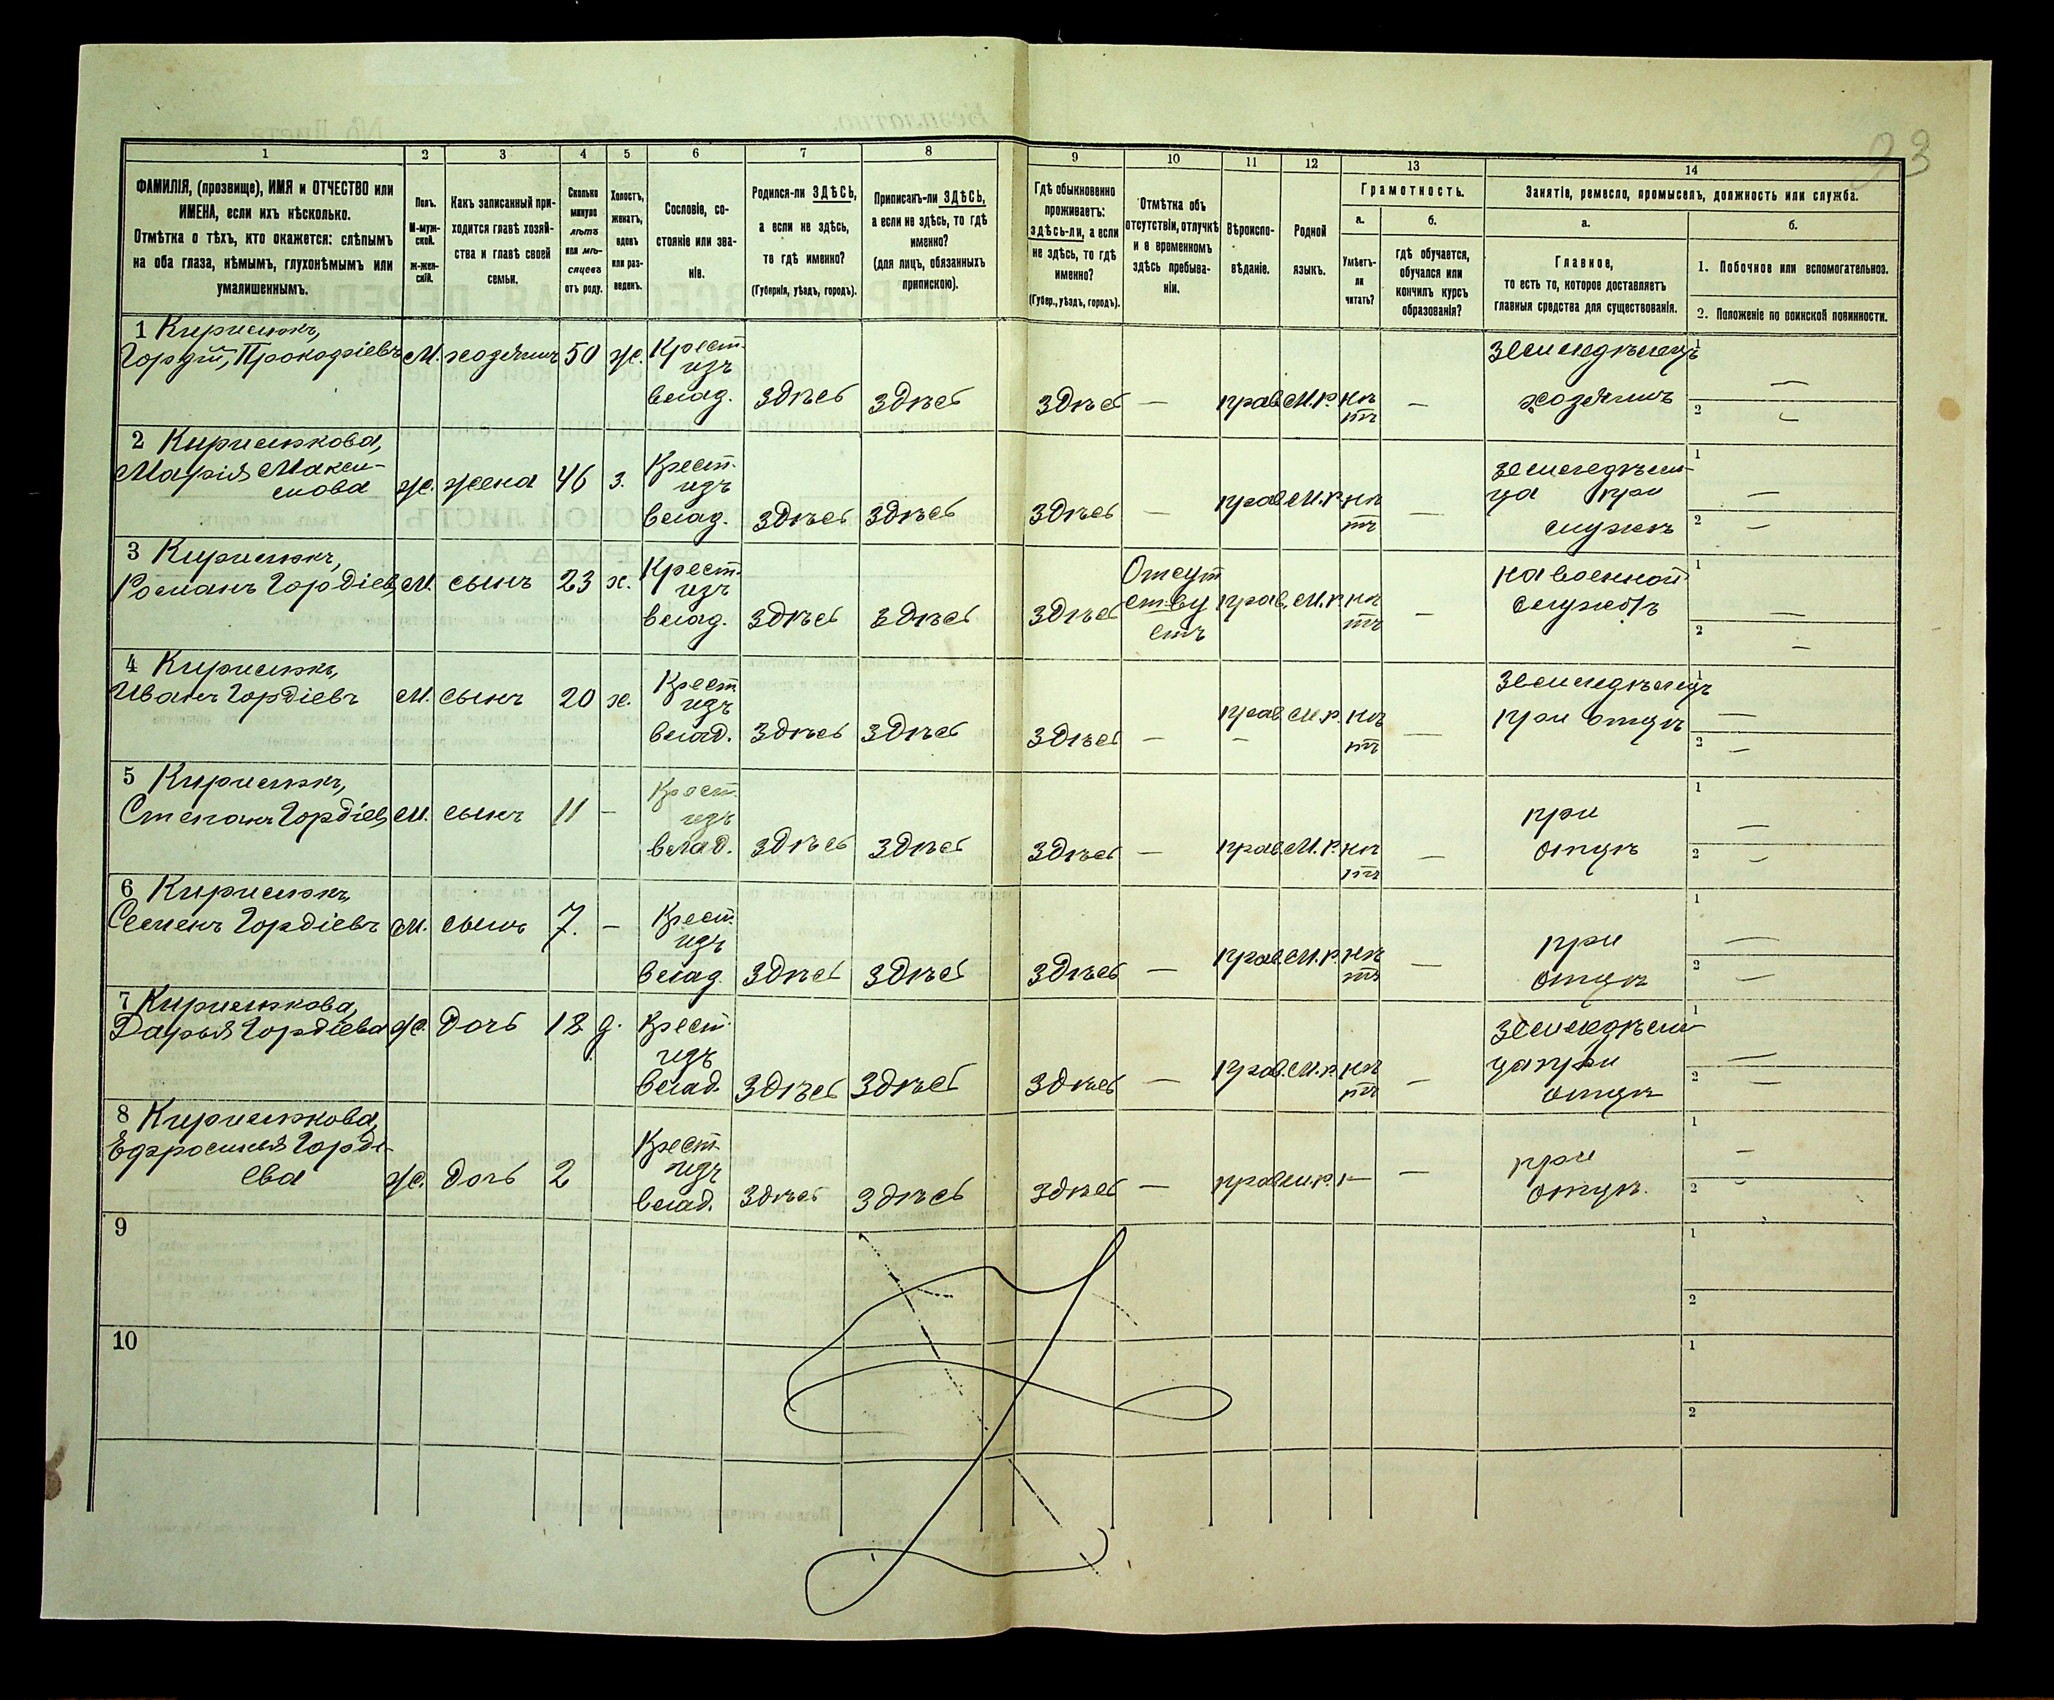 93
1 2 3 4 5 6 7 8 9 10 11 12 13 14
ФАМИЛІЯ, (прозвище), ИМЯ и ОТЧЕСТВО или
ИМЕНА, если ихъ нѣсколько.
Отмѣтка о тѣхъ, кто окажется: слѣпымъ
на оба глаза, нѣмымъ, глухонѣмымъ или
умалишеннымъ.
Полъ.
М-муж-
ской.
Ж-жен-
скій.
Какъ записанный при-
ходится главѣ хозяй-
ства и главѣ своей
семьи.
Сколько
минуло
лѣтъ
или мѣ-
сяцевъ
отъ роду.
Холостъ,
женатъ,
вдовъ
или раз-
веденъ.
Сословіе, со-
стояніе или зва-
ніе.
Родился-ли ЗДѢСЬ,
а если не здѣсь,
то гдѣ именно?
(Губернія, уѣздъ, городъ).
Приписанъ-ли ЗДѢСЬ,
а если не здѣсь, то гдѣ
именно?
(для лицъ, обязанныхъ
припискою).
Гдѣ обыкновенно
проживаетъ:
здѣсь-ли, а если
не здѣсь, то гдѣ
именно?
(Губер., уѣздъ, городъ).
Отмѣтка объ
отсутствіи, отлучкѣ
и о временномъ
здѣсь пребыва-
ніи.
Вѣроиспо-
вѣданіе.
Родной
языкъ.
Грамотность.
а. б.
Умѣетъ-
ли
читать?
гдѣ обучается,
обучался или
кончилъ курсъ
образованія?
Занятіе, ремесло, промыселъ, должность или служба.
а. б.
Главное,
то есть то, которое доставляетъ
главныя средства для существованія.
1. Побочное или вспомогательное.
2. Положеніе по воинской повинности.
1 Кирилюкъ,
Гордѣй, Прокофіевъ М. хозяинъ 50 ж. Крест.
изъ
влад. здѣсь здѣсь здѣсь — прав. М.р. нѣ
тъ — земледѣлецъ
хозяинъ 1 — 2 —
2 Кирилюкова,
Марія Макси-
мова ж. жена 46 з. Крест.
изъ
влад. здѣсь здѣсь здѣсь — прав. М.р. нѣ
тъ — земледѣли-
ца при
мужѣ 1 — 2 —
3 Кирилюкъ,
Романъ Гордіев. М. сынъ 23 х. Крест.
изъ
влад. здѣсь здѣсь здѣсь Отсут
ству
етъ прав. М.р. нѣ
тъ — на военной
службѣ 1 — 2 —
4 Кирилюкъ,
Иванъ Гордіевъ М. сынъ 20 х. Крест.
изъ
влад. здѣсь здѣсь здѣсь — прав. М.р. нѣ
тъ — земледѣлецъ
при отцѣ 1 — 2 —
5 Кирилюкъ,
Степанъ Гордіев. М. сынъ 11 — Крест.
изъ
влад. здѣсь здѣсь здѣсь — прав. М.р. нѣ
тъ — при
отцѣ 1 — 2 —
6 Кирилюкъ,
Семенъ Гордіевъ М. сынъ 7. — Крест.
изъ
влад. здѣсь здѣсь здѣсь — прав. М.р. нѣ
тъ — при
отцѣ 1 — 2 —
7 Кирилюкова,
Дарья Гордіева ж. дочь 18 д. Крест.
изъ
влад. здѣсь здѣсь здѣсь — прав. М.р. нѣ
тъ — земледѣли-
ца при
отцѣ 1 — 2 —
8 Кирилюкова,
Ефросинія Горді-
ева ж. дочь 2 Крест.
изъ
влад. здѣсь здѣсь здѣсь — прав. М.р. — — при
отцѣ. 1 — 2 —
9 1 2
10 1 2